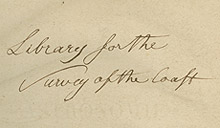 Library for the
Survey of the Coast